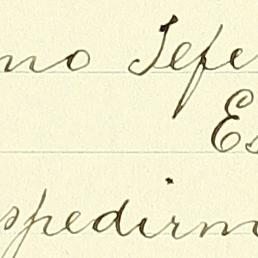 mo Jefe
Es
spedirm